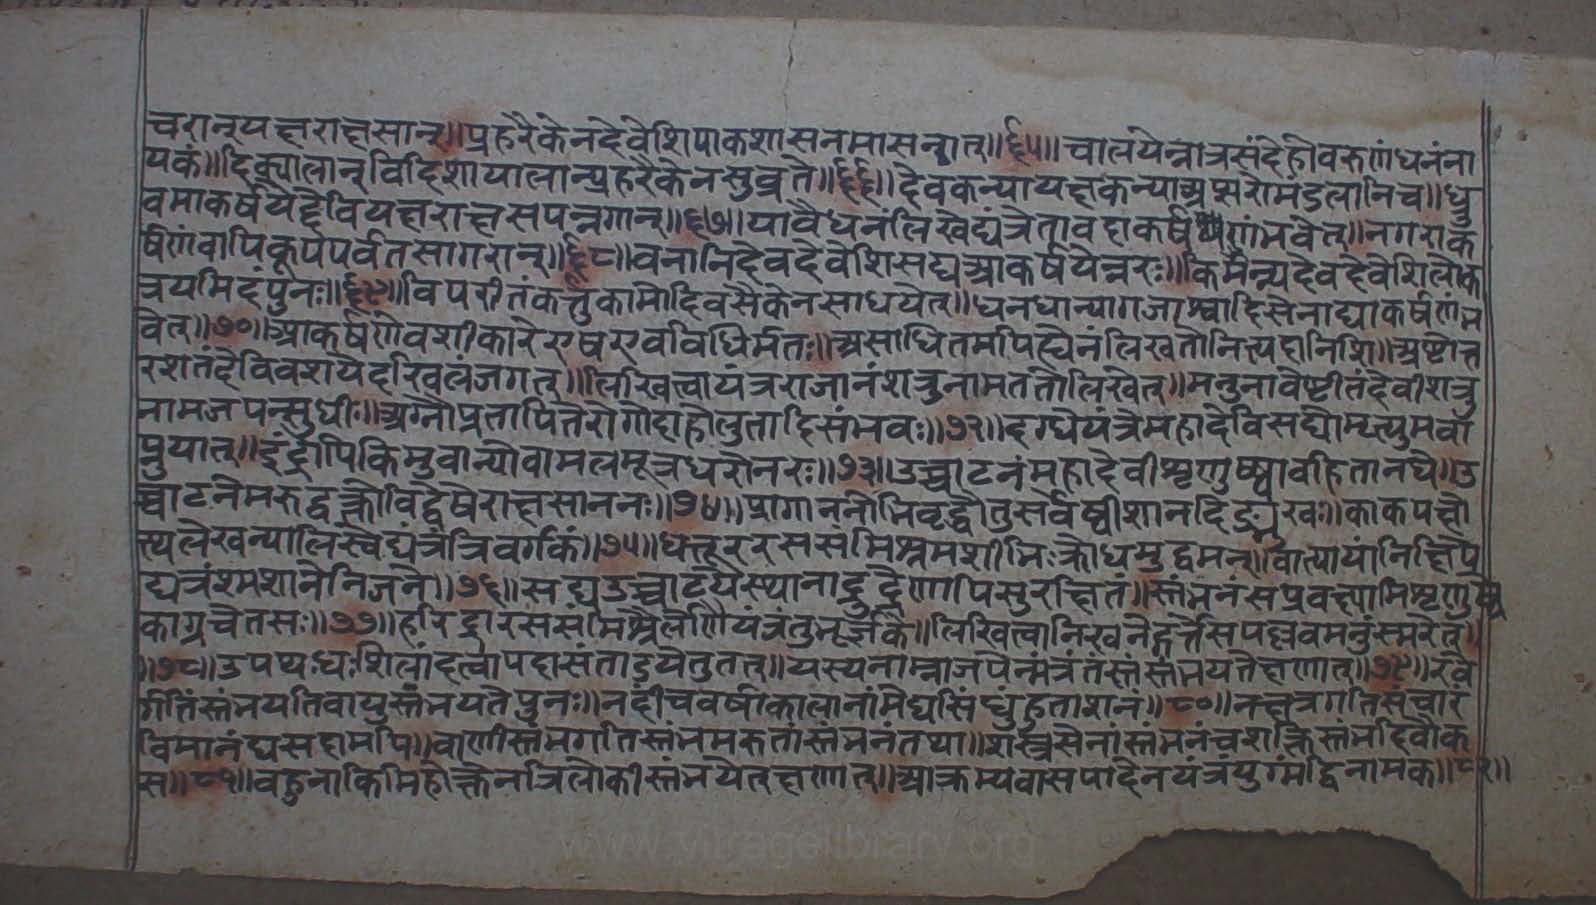 चरान्यक्षराक्षसान्॥प्रहरैकेनदेवेशिपाकशासनमासनात्॥६५॥चालयेन्नात्रसंदेहोवरुणंधनंना
यकं॥दिक्पालान्विदिशापालान्प्रहरैकेनसुव्रते॥६६॥देवकन्यायक्षकन्याअप्सरोमंडलानिच॥ध्रु
वमाकर्षयेद्देवियक्षराक्षसपन्नगान्॥६७॥यावैधनंलिखेद्यंत्रेतावदाकर्षणंभवेत्॥नगराक
र्षणंवापिकूपपर्वतसागरान्॥६८॥वनानिदेवदेवेशिसद्यआकर्षयेन्नरः॥किमन्यदेवदेवेशिलोक
त्रयमिदंपुनः॥६९॥विपरीतंकर्त्तुकामोदिवसैकेनसाधयेत्॥धनधान्यागजाश्वादिसेनाद्याकर्षणंभ
वेत्॥७०॥आकर्षणेवशीकारेएषएवविधिर्मतः॥असाधितमपिह्येनंलिखतोनित्यदानिशि॥अष्टोत्त
रशतंदेविवशयेदखिलंजगत्॥लिखित्वायंत्रराजानंशत्रुनामततोलिखेत्॥मनुनावेष्टीतंदेवीशत्रु
नामजपन्सुधीः॥अग्नौप्रतापितेरोगोदाहोलुतादिसंभवः॥७२॥दग्धेयंत्रेमहादेविसद्योमृत्युमवा
प्नुयात्॥इंद्रोपिकिमुवान्योवामलमूत्रधरोनरः॥७३॥उच्चाटनंमहादेवीशृणुष्वावहितानघे॥उ
च्चाटनेमरुद्वक्त्रोविद्वेषेराक्षसाननः॥७४॥प्रागाननोभिवृद्धौतुसर्वेष्वीशानदिङ्मुखः॥काकपक्षो
त्थलेखन्यालिखेद्यंत्रंत्रिवर्गिकं॥७५॥धत्तूररससंमिश्रमशीभिःक्रोधमुद्वमन्॥वात्यायांनिक्षिपे
द्यत्रंशमशानेनिजने॥७६॥सद्यउच्चाटयेस्थानाद्रुद्रेणापिसुरक्षितं॥स्तंभनंसप्रवक्ष्यामिशृणुष्वै
काग्रचेतसः॥७७॥हरिद्रारससंमिश्रैर्लिखेयंत्रंतुभूर्ज्जके॥लिखित्वानिखनेद्गर्त्तेसपल्लवमनुंस्मरेत्॥
॥७८॥उपर्यधःशिलांदत्वापदासंताडयेतुतत्॥यस्यनाम्नाजपेन्मंत्रंतस्तंस्तंभयतेक्षणात्॥७९॥रवे
र्गतिंस्तंभयतिवायुस्तंभयतेपुनः॥नदीचवर्षाकालानांमेघसिंधुंहुताशनं॥८०॥नक्षत्रगतिसंचारं
विमानंघसदामपि॥वाणीस्तंभगतिस्तंभमरुतांस्तंभनंतथा॥शस्त्रसेनांस्तंभनंचशक्तिस्तंभदिवौक
स॥८१॥वहुनाकिमिहोक्तेनत्रिलोकीस्तंभयेत्क्षणात्॥आक्रम्यवासपादेनयंत्रंयुग्मंद्विनामक॥८२॥